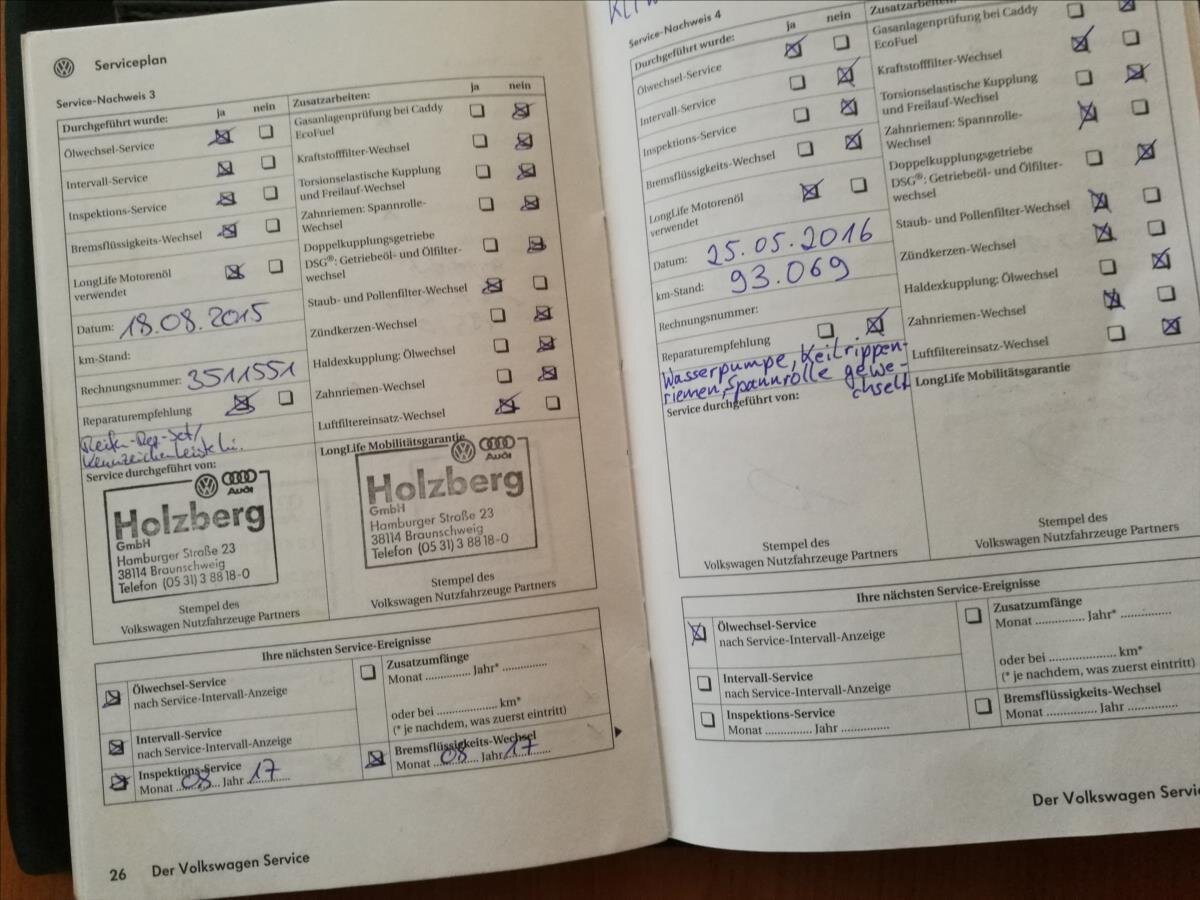 Serviceplan
Service-Nachweis 3
Durchgeführt wurde: ja nein
Ölwechsel-Service
Intervall-Service
Inspektions-Service
Bremsflüssigkeits-Wechsel
LongLife Motorenöl
verwendet
Datum: 18.08.2015
km-Stand:
Rechnungsnummer: 3511551
Reparaturempfehlung
Reifen-Rep-Set/
Kennzeichenleiste hi.
Service durchgeführt von:
Audi
Holzberg
GmbH
Hamburger Straße 23
38114 Braunschweig
Telefon (05 31) 3 88 18-0
Stempel des
Volkswagen Nutzfahrzeuge Partners
Zusatzarbeiten: ja nein
Gasanlagenprüfung bei Caddy
EcoFuel
Kraftstofffilter-Wechsel
Torsionselastische Kupplung
und Freilauf-Wechsel
Zahnriemen: Spannrolle-
Wechsel
Doppelkupplungsgetriebe
DSG®: Getriebeöl- und Ölfilter-
wechsel
Staub- und Pollenfilter-Wechsel
Zündkerzen-Wechsel
Haldexkupplung: Ölwechsel
Zahnriemen-Wechsel
Luftfiltereinsatz-Wechsel
LongLife Mobilitätsgarantie
Audi
Holzberg
GmbH
Hamburger Straße 23
38114 Braunschweig
Telefon (05 31) 3 88 18-0
Stempel des
Volkswagen Nutzfahrzeuge Partners
Ihre nächsten Service-Ereignisse
Ölwechsel-Service
nach Service-Intervall-Anzeige
Intervall-Service
nach Service-Intervall-Anzeige
Inspektions-Service
Monat 08 Jahr 17
Zusatzumfänge
Monat .............. Jahr* ..............
oder bei .................... km*
(* je nachdem, was zuerst eintritt)
Bremsflüssigkeits-Wechsel
Monat 08 Jahr 17
26 Der Volkswagen Service
Service-Nachweis 4
Durchgeführt wurde: ja nein
Ölwechsel-Service
Intervall-Service
Inspektions-Service
Bremsflüssigkeits-Wechsel
LongLife Motorenöl
verwendet
Datum: 25.05.2016
km-Stand: 93.069
Rechnungsnummer:
Reparaturempfehlung
Wasserpumpe, Keilrippen-
riemen, Spannrolle gewe-
chselt
Service durchgeführt von:
Stempel des
Volkswagen Nutzfahrzeuge Partners
Zusatzarbeiten:
Gasanlagenprüfung bei Caddy
EcoFuel
Kraftstofffilter-Wechsel
Torsionselastische Kupplung
und Freilauf-Wechsel
Zahnriemen: Spannrolle-
Wechsel
Doppelkupplungsgetriebe
DSG®: Getriebeöl- und Ölfilter-
wechsel
Staub- und Pollenfilter-Wechsel
Zündkerzen-Wechsel
Haldexkupplung: Ölwechsel
Zahnriemen-Wechsel
Luftfiltereinsatz-Wechsel
LongLife Mobilitätsgarantie
Stempel des
Volkswagen Nutzfahrzeuge Partners
Ihre nächsten Service-Ereignisse
Ölwechsel-Service
nach Service-Intervall-Anzeige
Intervall-Service
nach Service-Intervall-Anzeige
Inspektions-Service
Monat .............. Jahr ..............
Zusatzumfänge
Monat .............. Jahr* ..............
oder bei .................... km*
(* je nachdem, was zuerst eintritt)
Bremsflüssigkeits-Wechsel
Monat .............. Jahr ..............
Der Volkswagen Servi